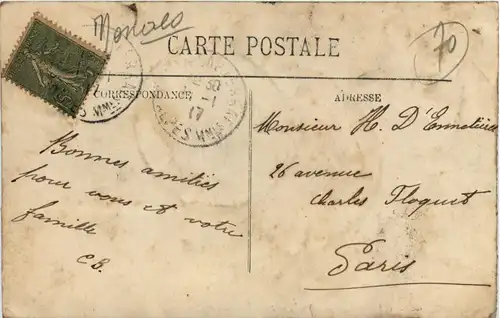 Monaco
CARTE POSTALE
70
CORRESPONDANCE
ADRESSE
30
-1
17
ALPES MMES
Monsieur H. D'Ennetières
26 avenue
Charles Floquet
Paris
Bonnes amitiés
pour vous et votre
famille
C.B.